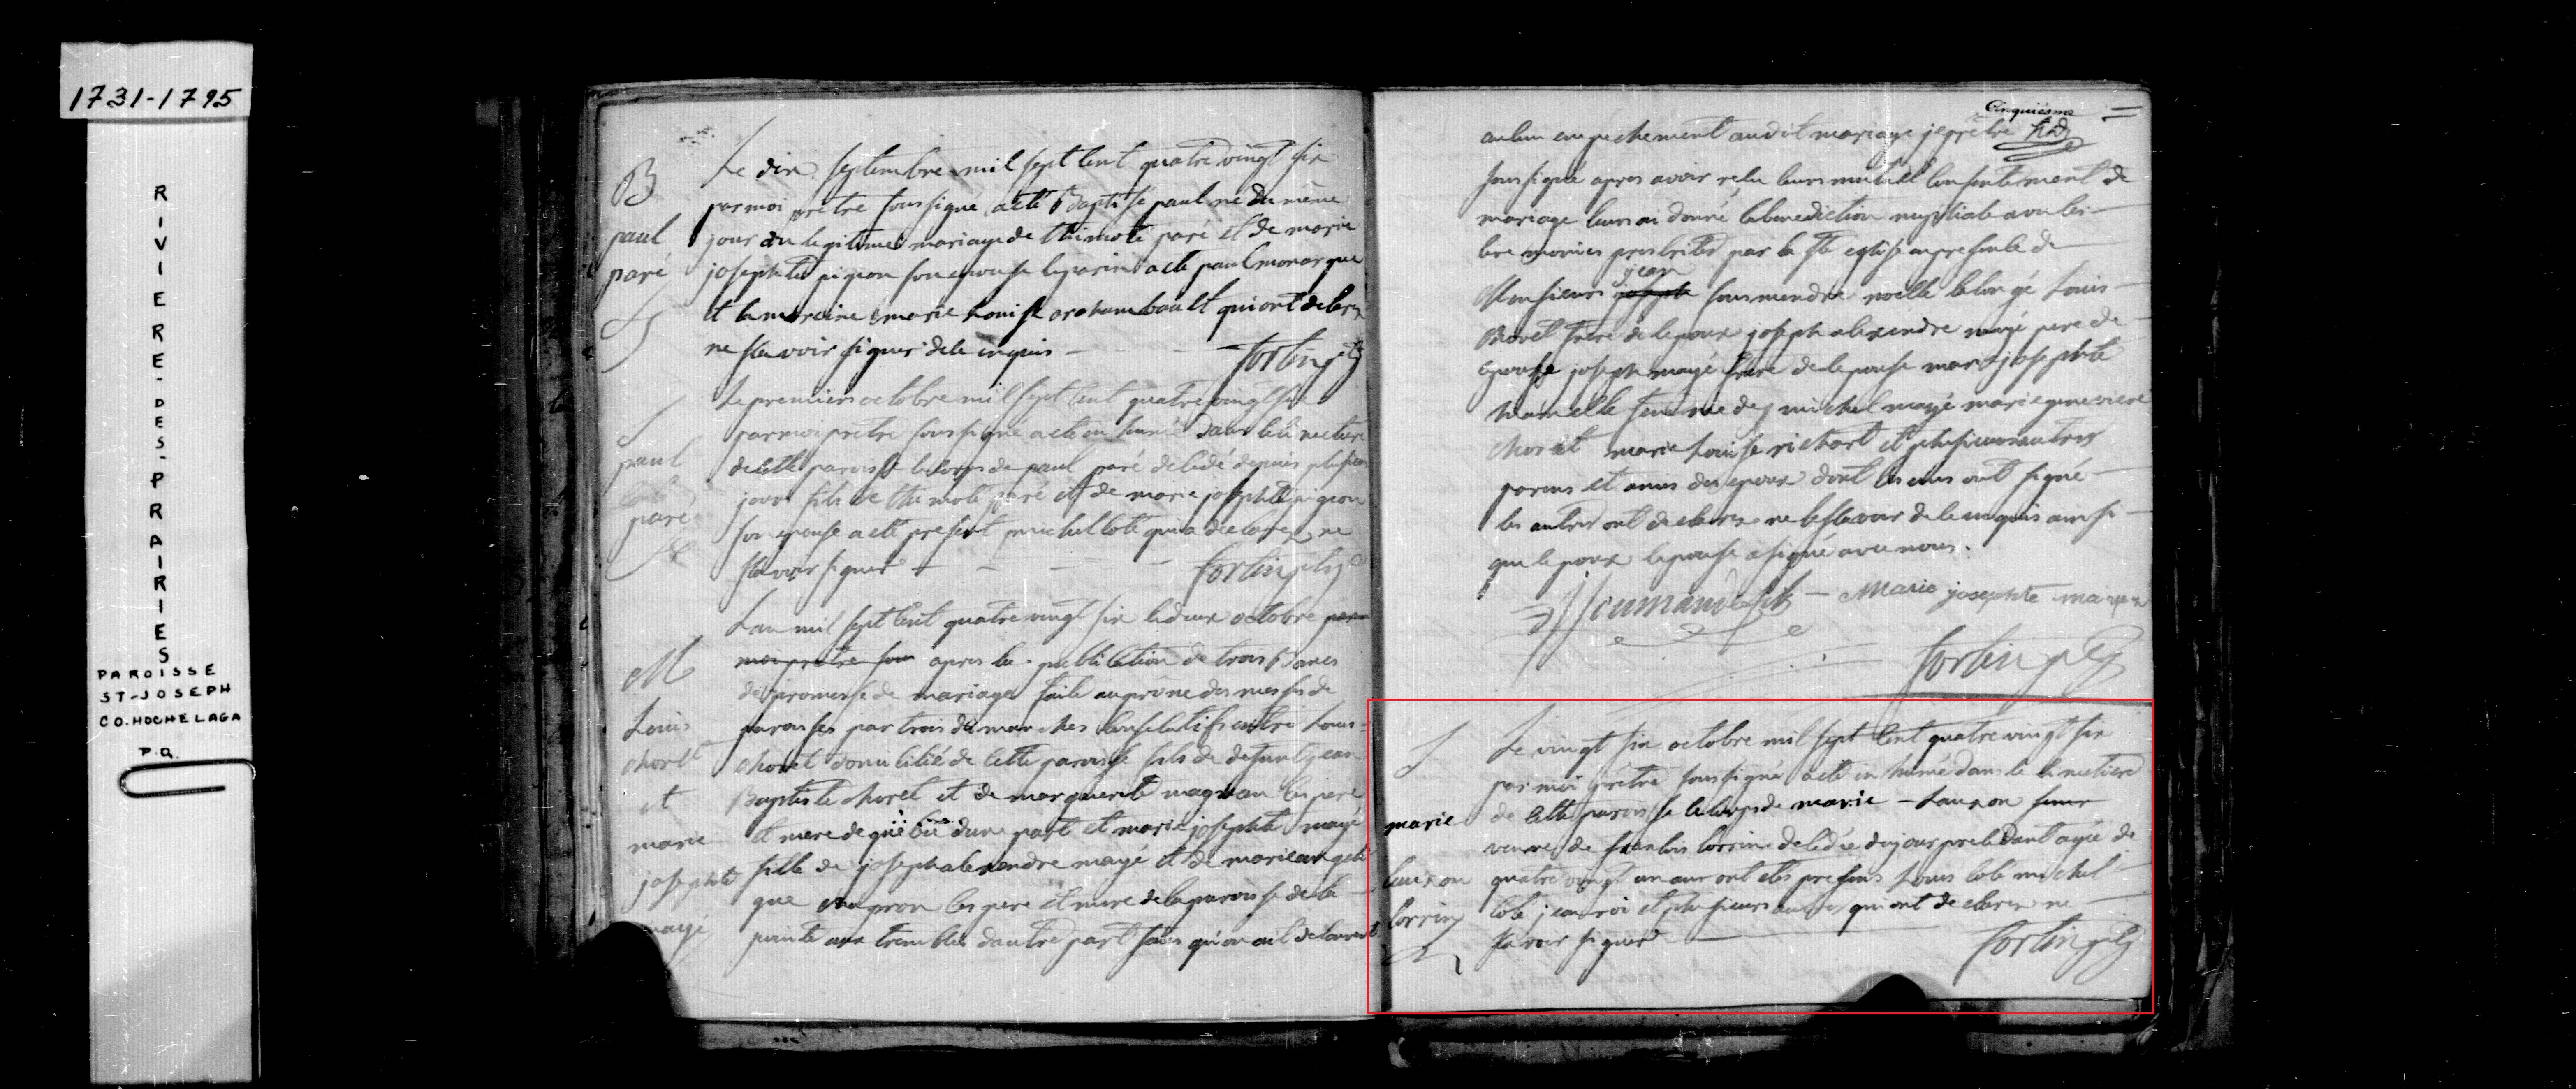 1731-1795
RIVIERE-DES-PRAIRIES
PAROISSE
ST-JOSEPH
CO. HOCHELAGA
P.Q.
B
paul
paré
Le dix septembre mil sept cent quatre vingt six
par moi prêtre soussigné a eté baptisé paul né du même
jour du legitime mariage de thimoté paré et de marie
josephte pigeon son epouse le parin a eté paul monarque
et la mareine marie Louise archambault qui ont declarez
ne sçavoir signer de ce enquis
fortin ptr
S
paul
paré
Le premier octobre mil sept cent quatre vingt six
par moi prêtre soussigné a eté inhumé dans le cimetiere
de cette paroisse le corps de paul paré decedé depuis plusieurs
jours fils de thimoté paré et de marie josephte pigeon
son epouse a eté present michel lobé qui a declarez ne
sçavoir signer
fortin ptr
M
Louis
choret
et
marie
josephte
mayé
L'an mil sept cent quatre vingt six le deux octobre par
moi prêtre sous apres la publication de trois bancs
de promesse de mariage faite au prône des messes de
paroisses par trois dimanches consecutifs entre Louis
choret domicilié de cette paroisse fils de defunt jean
Baptiste choret et de marguerite magnan les pere
et mere de quebec d'une part et marie josephte mayé
fille de joseph alexendre mayé et de marie angeli
que chapron les pere et mere de la paroisse de la
pointe aux trembles d'autre part sans qu'on ait decouvert
Cinquiésme
aucun empechement audit mariage je prêtre
soussigné apres avoir reçu leurs mutuel consentement de
mariage leurs ai donné la benediction nuptiale avec les
ceremonies prescrites par la Ste eglise en presence de
Monsieurs joseph jean noelle belongé Louis
choret frere de lepoux joseph alexendre mayé pere de
epouse joseph mayé frere de lepouse marie josephte
hamelle femme de j michel mayé marie genevieve
choret marie Louise richart et plusieurs autres
parens et amis des epoux dont les uns ont signé
les autres ont declarez ne le sçavoir de ce enquis ainsi
que lepoux lepouse a signé avec nous.
Marie josephte
fortin ptr
S
marie
lauzon
lorrin
Le vingt six octobre mil sept cent quatre vingt six
par moi prêtre soussigné a eté inhumée dans le cimetiere
de cette paroisse le corps de marie - Lauzon
veuve de francois lorrin decedée du jour precedant agée de
quatre vingt un ans ont etés presens Louis lobé michel
lobé jean roi et plusieurs autres qui ont declarez ne
sçavoir signer
fortin ptr